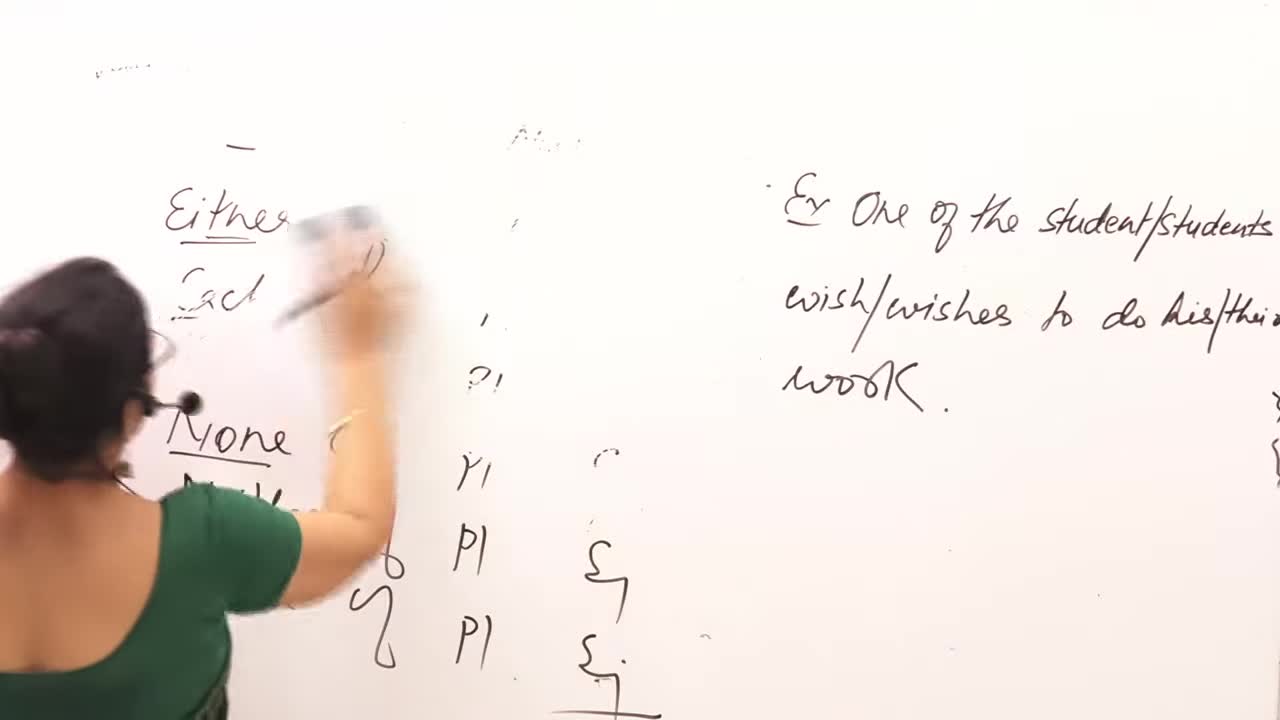 Either
None
Pl
Pl
Pl
Sj
Sj
Ex One of the student/students
wish/wishes to do his/their
work.